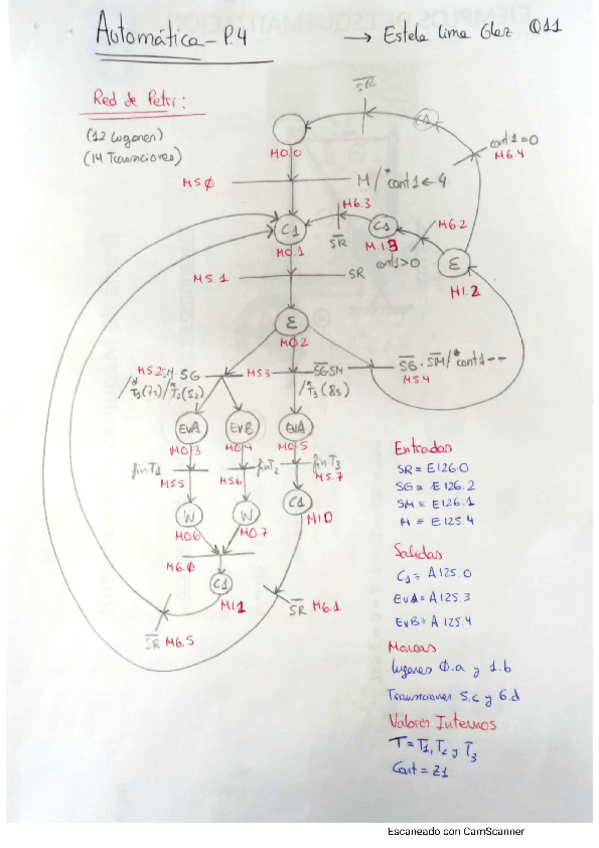 Automática - P.4 → Estela Lima Glez Q11
Red de Petri:
(12 lugares)
(14 Transiciones)
SR
cont1=0
M6.4
M0.0
M5.0
M/*cont1←4
M6.3
C1
M6.2
C1
M0.1
SR
M1.3
cont1>0
E
M1.2
M5.1
SR
E
M0.2
M5.2 SM·SG
M5.3
SG SM
SG·SM/*cont1--
M5.4
/*T3(8s)
EvA
EvB
EvA
M0.3
M0.4
M0.5
finT1
finT2
finT3
M5.5
M5.6
M5.7
W
W
C1
M0.6
M0.7
M1.0
M6.0
C1
M1.1
SR M6.1
SR M6.5
Entradas
SR = E126.0
SG = E126.2
SM = E126.1
M = E125.4
Salidas
C1 = A125.0
EvA = A125.3
EvB = A125.4
Marcas
lugares 0.a y 1.b
Transiciones 5.c y 6.d
Valores Internos
T = T1, T2 y T3
Cont = Z1
Escaneado con CamScanner